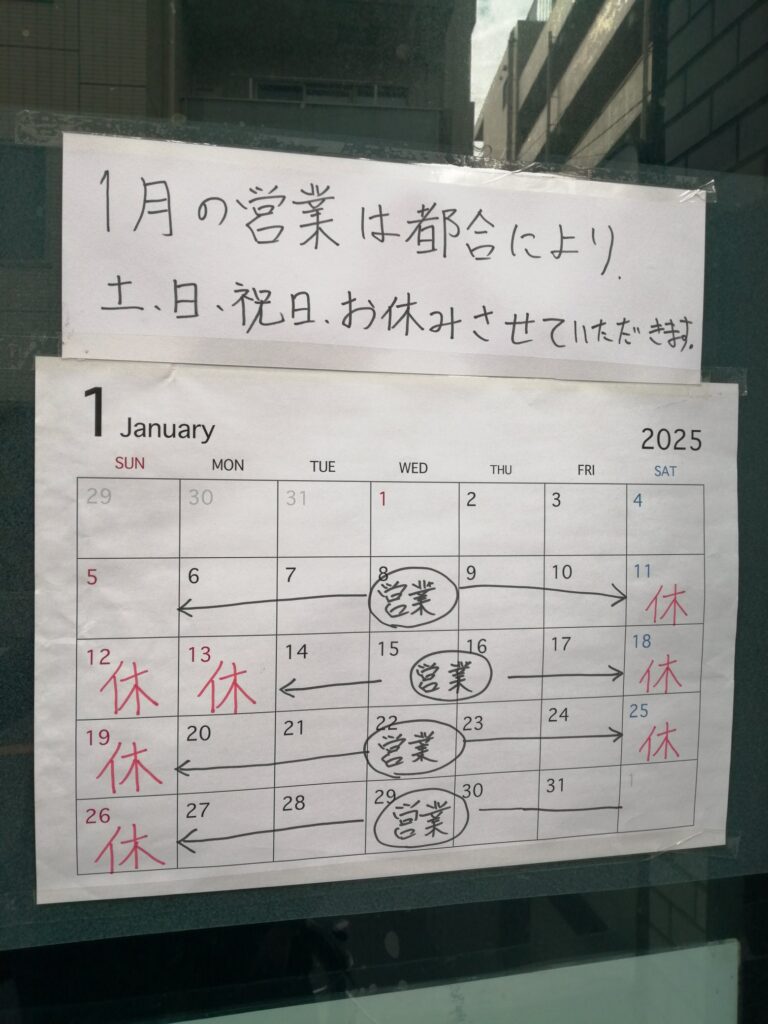 1月の営業は都合により.
土、日、祝日、お休みさせていただきます。
1 January 2025
SUN MON TUE WED THU FRI SAT
29 30 31 1 2 3 4
5 6 7 8 9 10 11
営業 休
12 13 14 15 16 17 18
休 休 営業 休
19 20 21 22 23 24 25
休 営業 休
26 27 28 29 30 31 1
休 営業